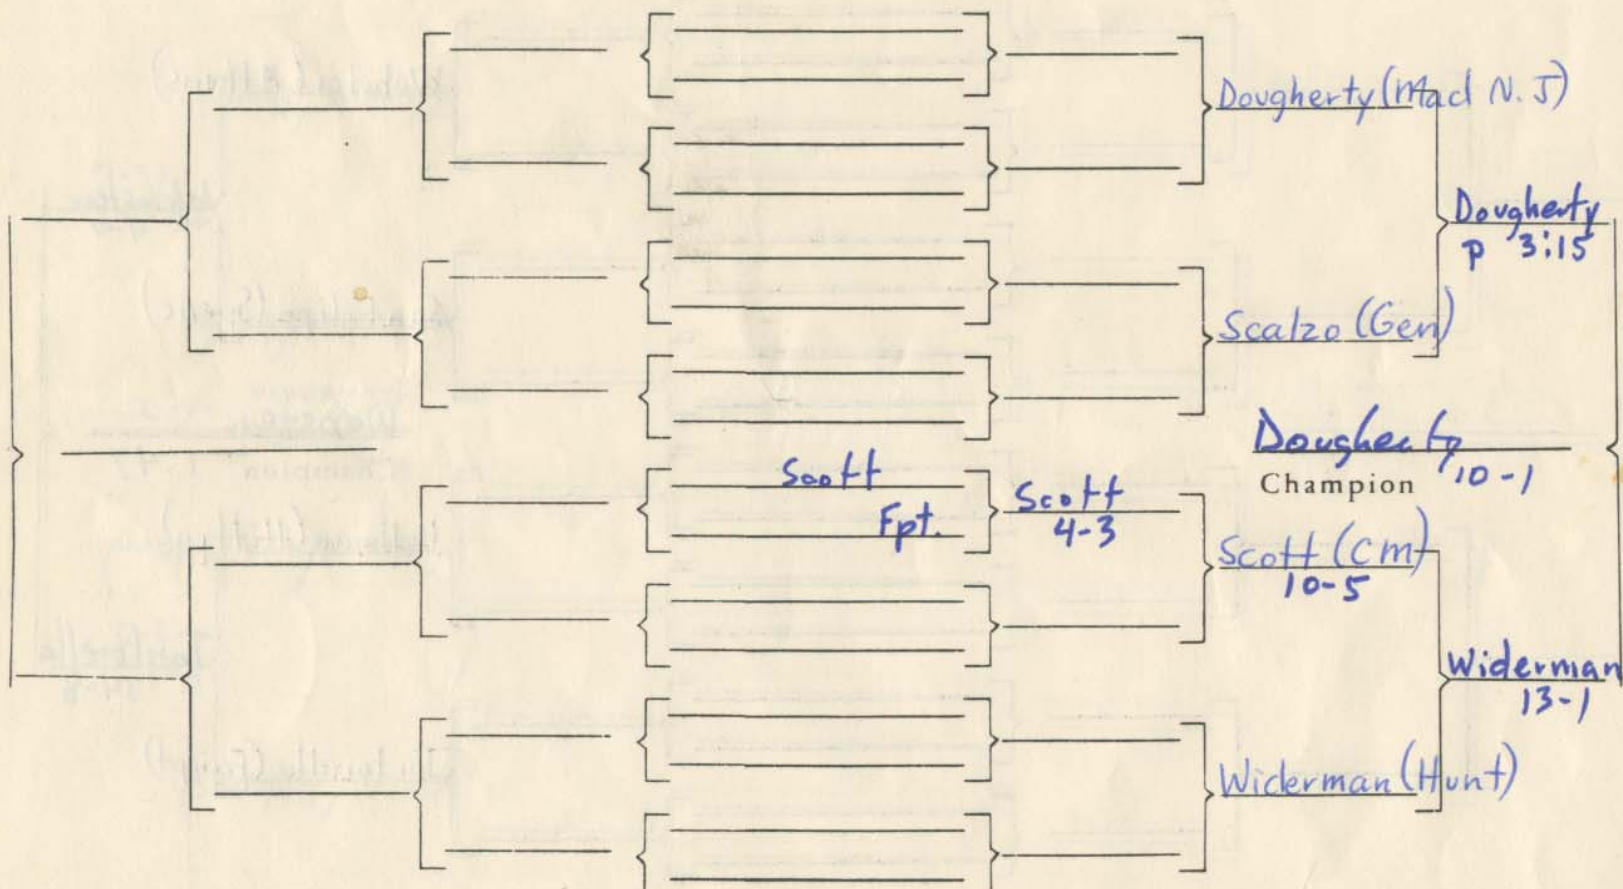 Dougherty (Mad N.J)
Dougherty
p 3:15
Scalzo (Gen)
Dougherty
10-1
Champion
Scott
Fpt.
Scott
4-3
Scott (CM)
10-5
Widerman
13-1
Widerman (Hunt)